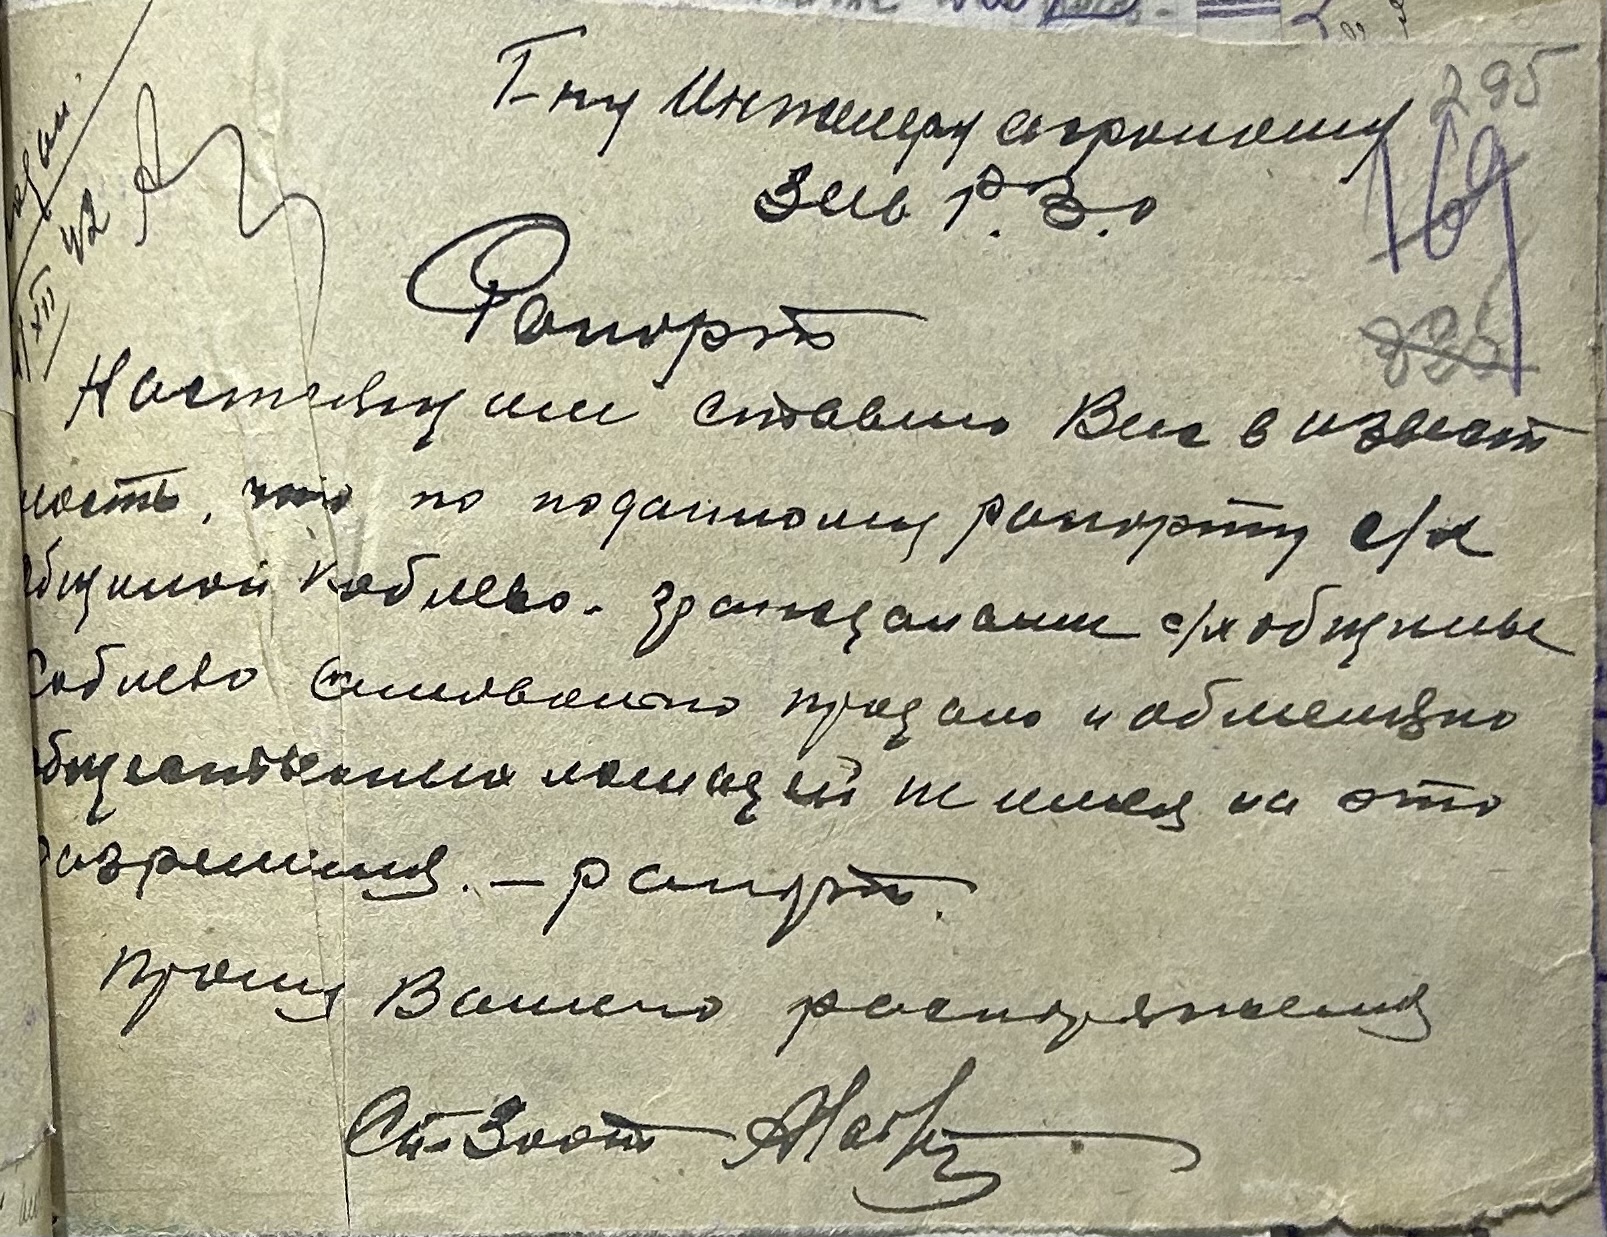 295
169
325
XII 42
Г-ну Инженеру агроному
Зем Р.З.О
Рапорт
Настоящим ставлю Вас в извест
ность, что по поданному рапорту с/х
общиной Коблево. гражданами с/х общины
Коблево самовольно продано и обменяно
общественных лошадей не имея на это
разрешения. – рапорт.
Прошу Вашего распоряжения
Ст. Зоот